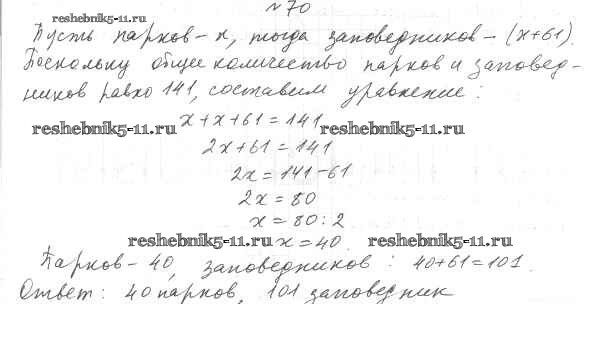 №70
reshebnik5-11.ru
Пусть парков - x, тогда заповедников - (x+61).
Поскольку общее количество парков и заповед-
ников равно 141, составим уравнение:
x + x + 61 = 141
reshebnik5-11.ru reshebnik5-11.ru
2x+61 = 141
2x = 141-61
2x = 80
x = 80 : 2
reshebnik5-11.ru x = 40. reshebnik5-11.ru
Парков - 40, заповедников : 40+61=101.
Ответ: 40 парков, 101 заповедник